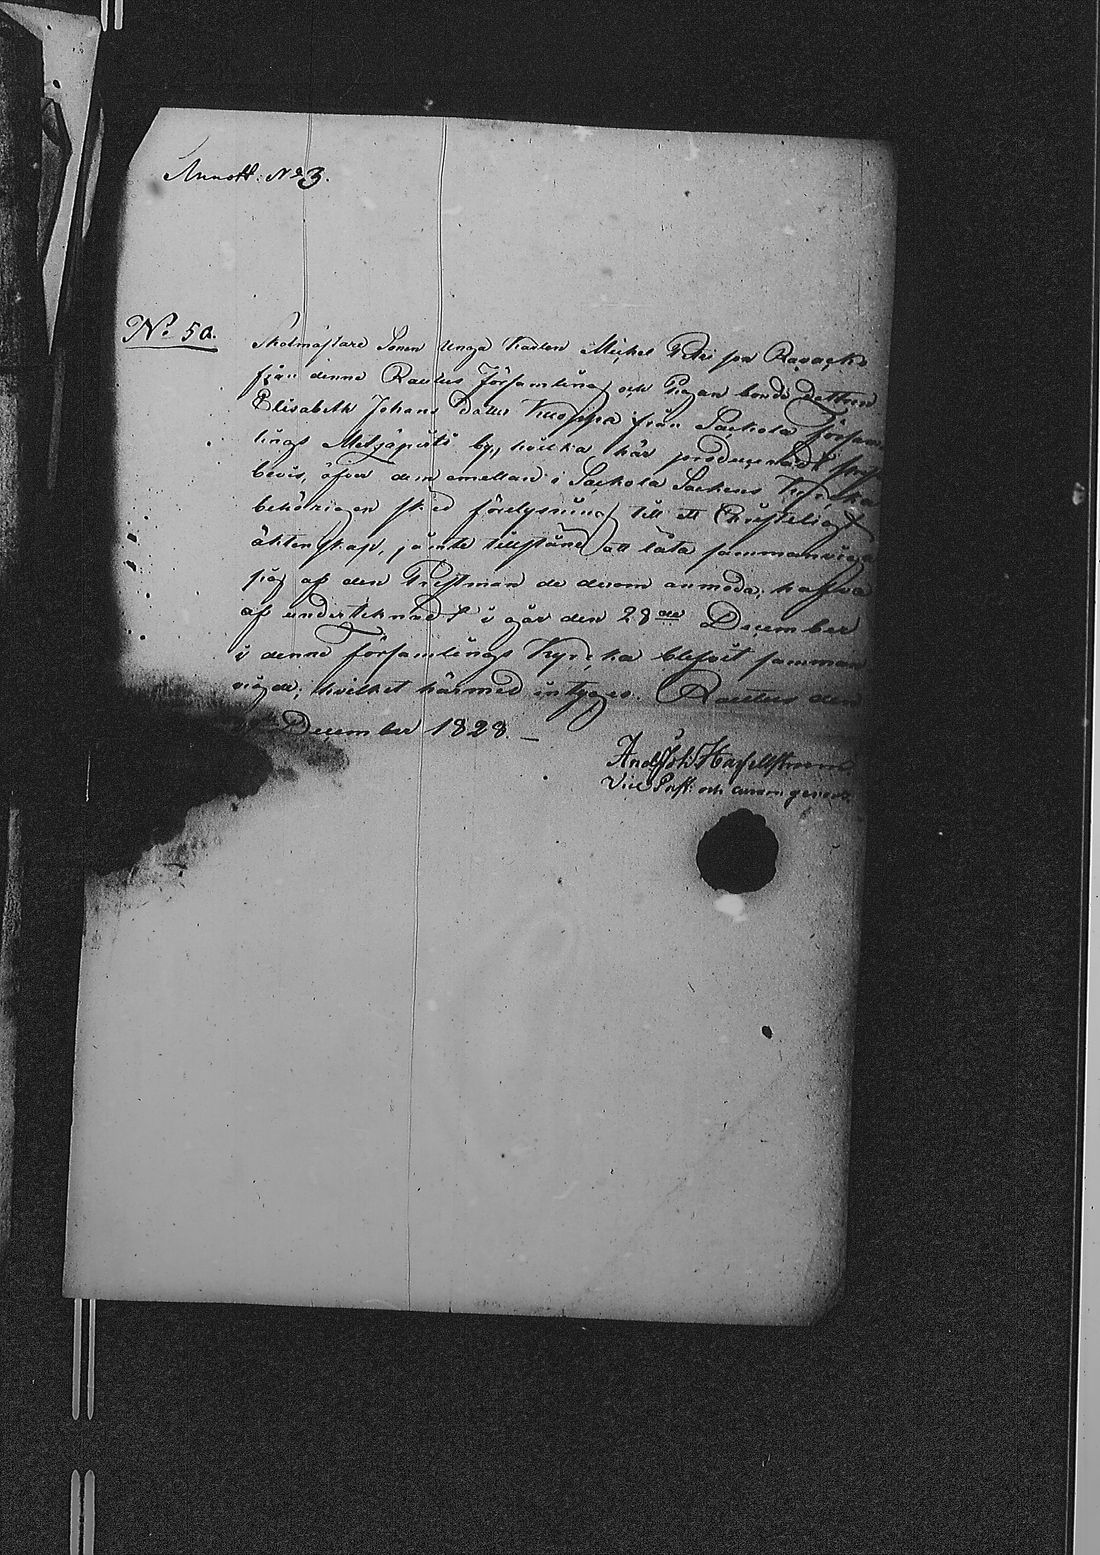 Annott: No 3.
No 50.
Skolmästare Sonen Unga Karlen Michel Petri
från denne Rautus Församling och Pigan bonde dottren
Elisabeth Johans Dotter Kuoppa från Sackola Försam
lings by, hvilka här producerade
bevis, öfver dem emellan i Sackola Sockens Kyrcka
behörigen sked förelysning till ett Christeligt
äktenskap, jämte tillstånd att låta sammanviga
sig af den Prestman de derom anmoda; hafva
af undertecknad i går den 28de December
i denne Församlings Kyrcka blifvit samman
vigde; hvilket härmed intygas. Rautus den
December 1828. —
And Joh:
Vice Past: och curam gerens